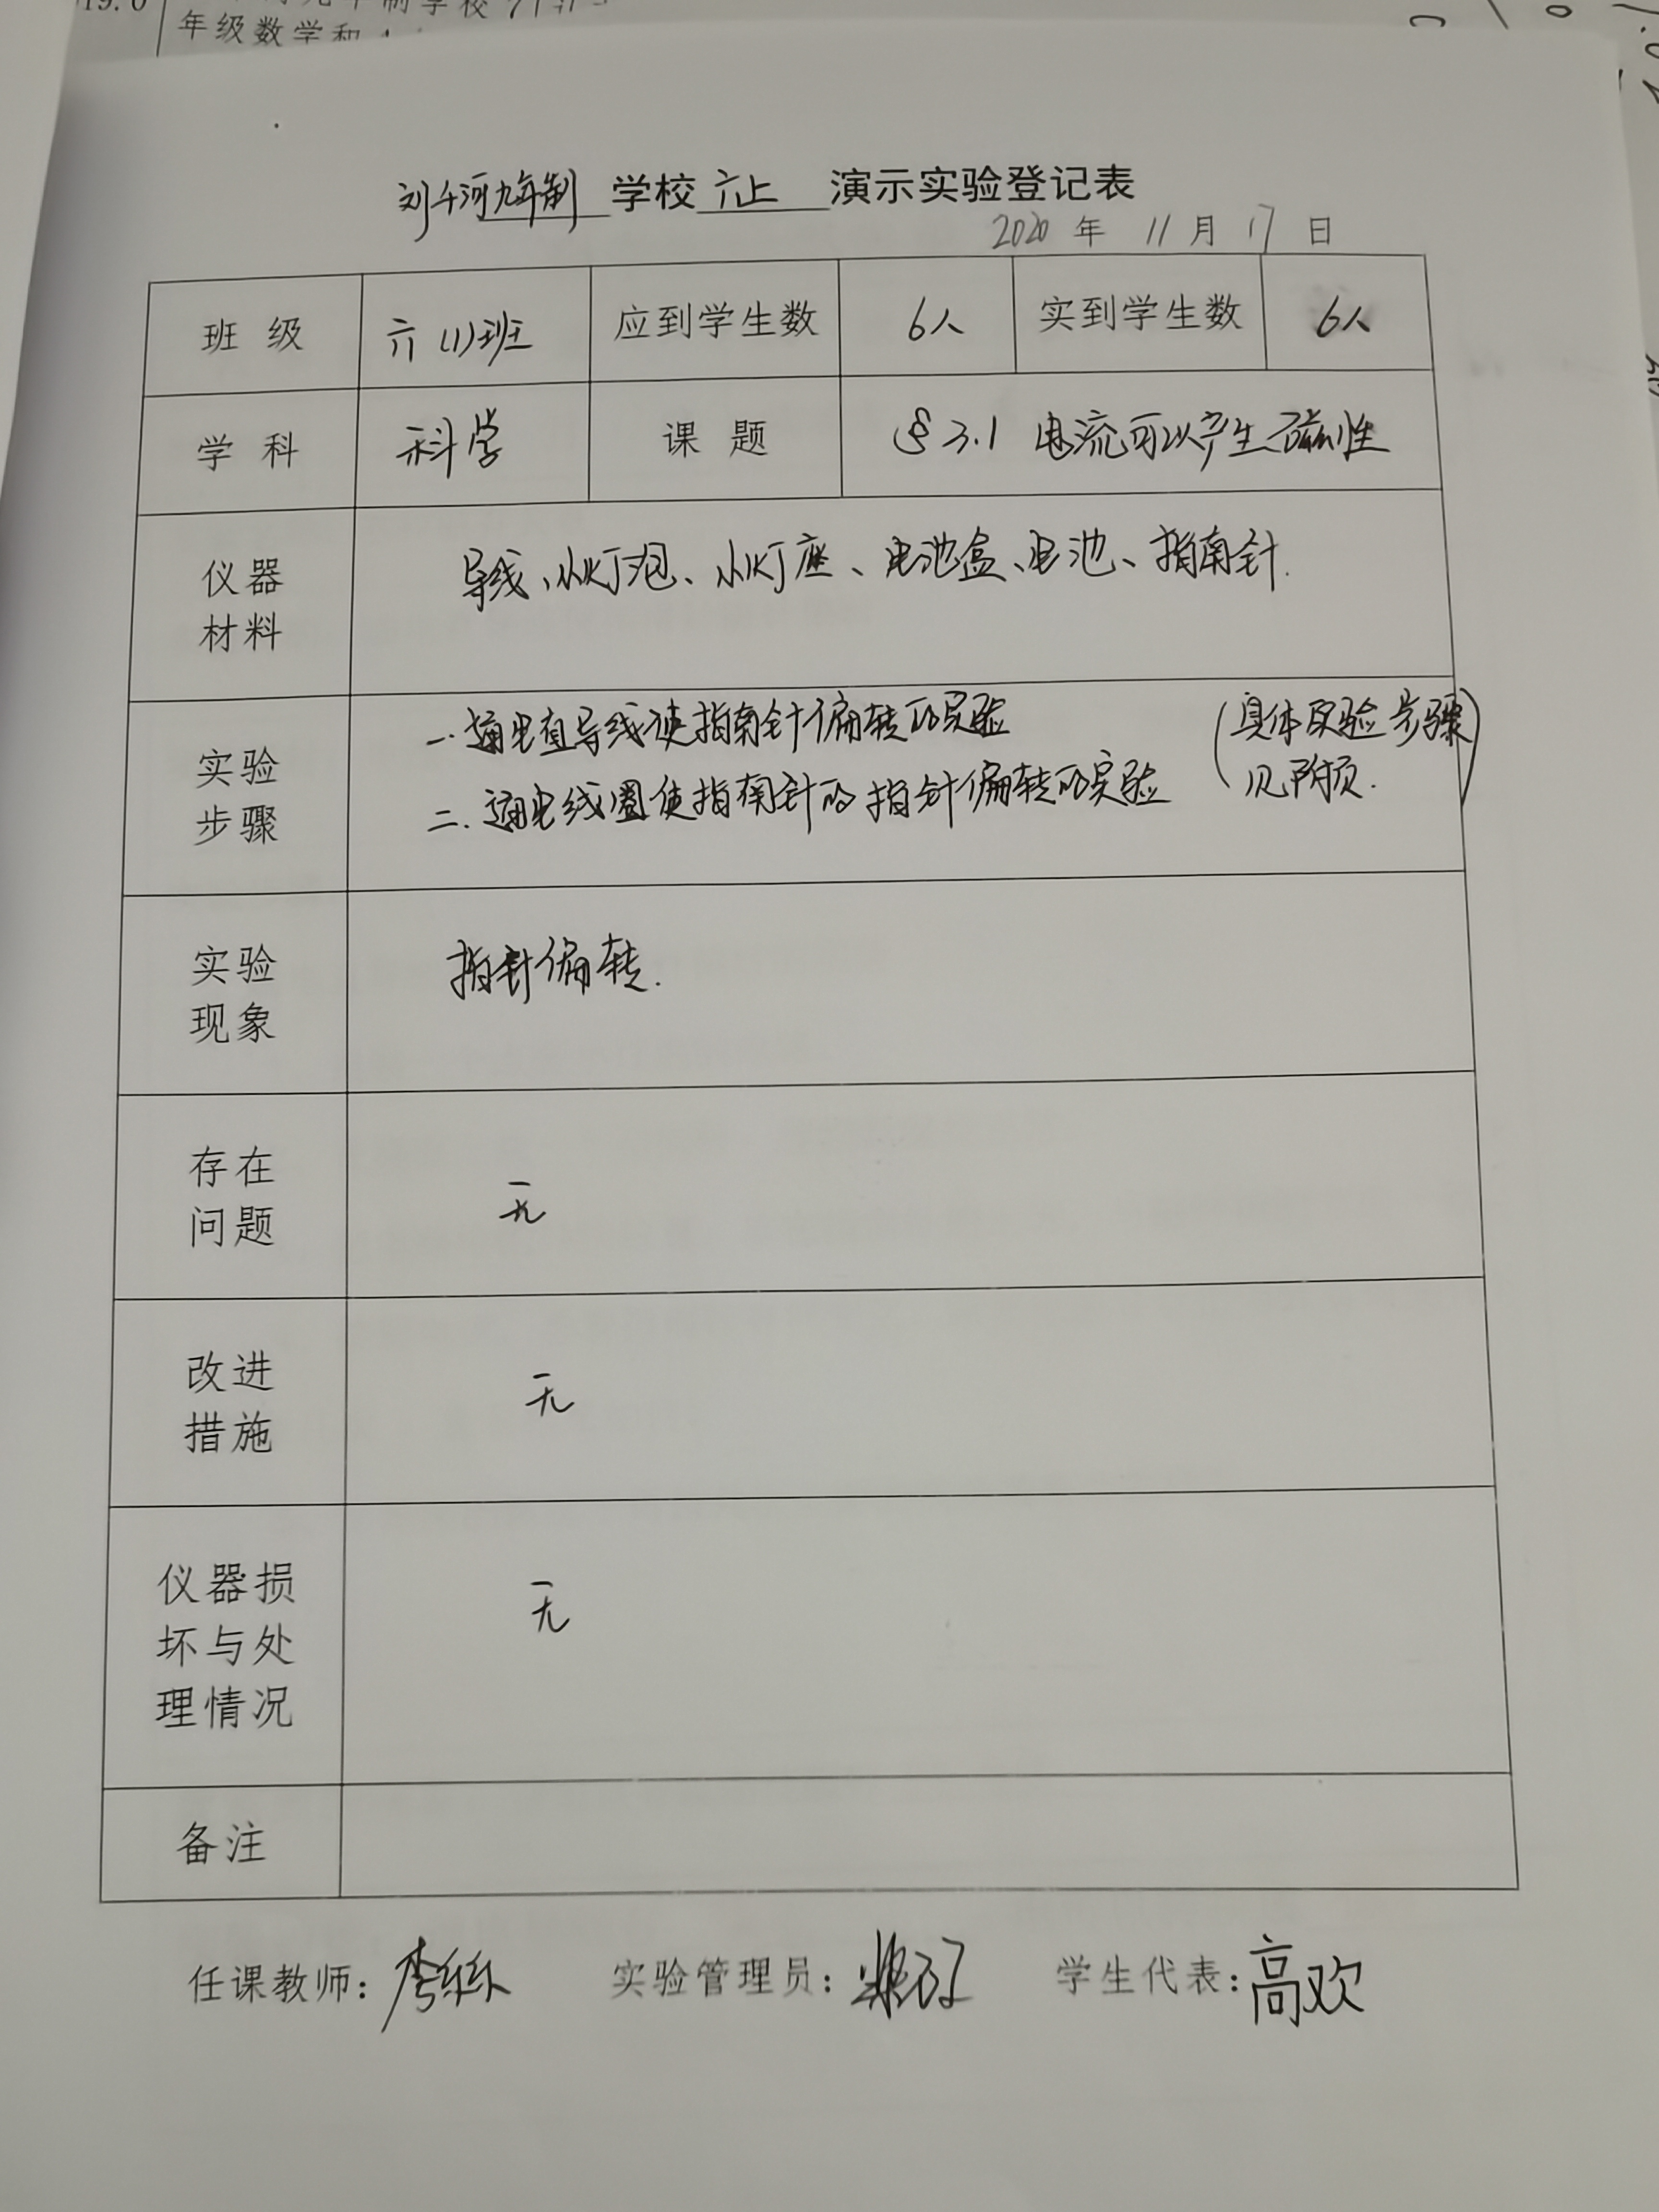 年级数学和
刘千河九年制 学校 六上 演示实验登记表
2020 年 11 月 17 日
班 级 六(1)班 应到学生数 6人 实到学生数 6人
学 科 科学 课 题 §3.1 电流可以产生磁性
仪器
材料
导线、小灯泡、小灯座、电池盒、电池、指南针.
实验
步骤
一.通电直导线使指南针偏转的实验
二.通电线圈使指南针的指针偏转的实验
(具体实验步骤
见附页.)
实验
现象
指针偏转.
存在
问题
无
改进
措施
无
仪器损
坏与处
理情况
无
备注
任课教师: 实验管理员: 学生代表:高欢